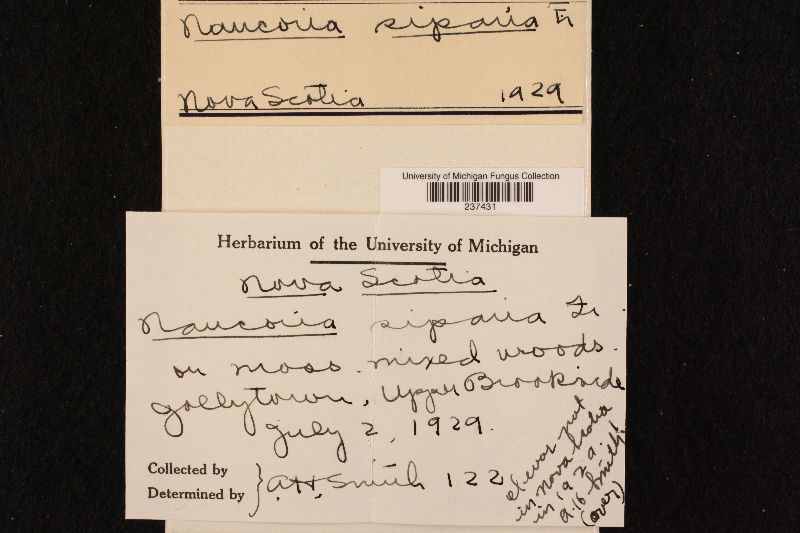 Naucoria siparia Fr
Nova Scotia 1929
University of Michigan Fungus Collection
237431
Herbarium of the University of Michigan
Nova Scotia
Naucoria siparia Fr
on moss mixed woods.
Gollytown, Upper Brookside
July 2, 1929.
Collected by
Determined by
A.H. Smith 122
I was not
in Nova Scotia
in 1929.
A.H. Smith.
(over)